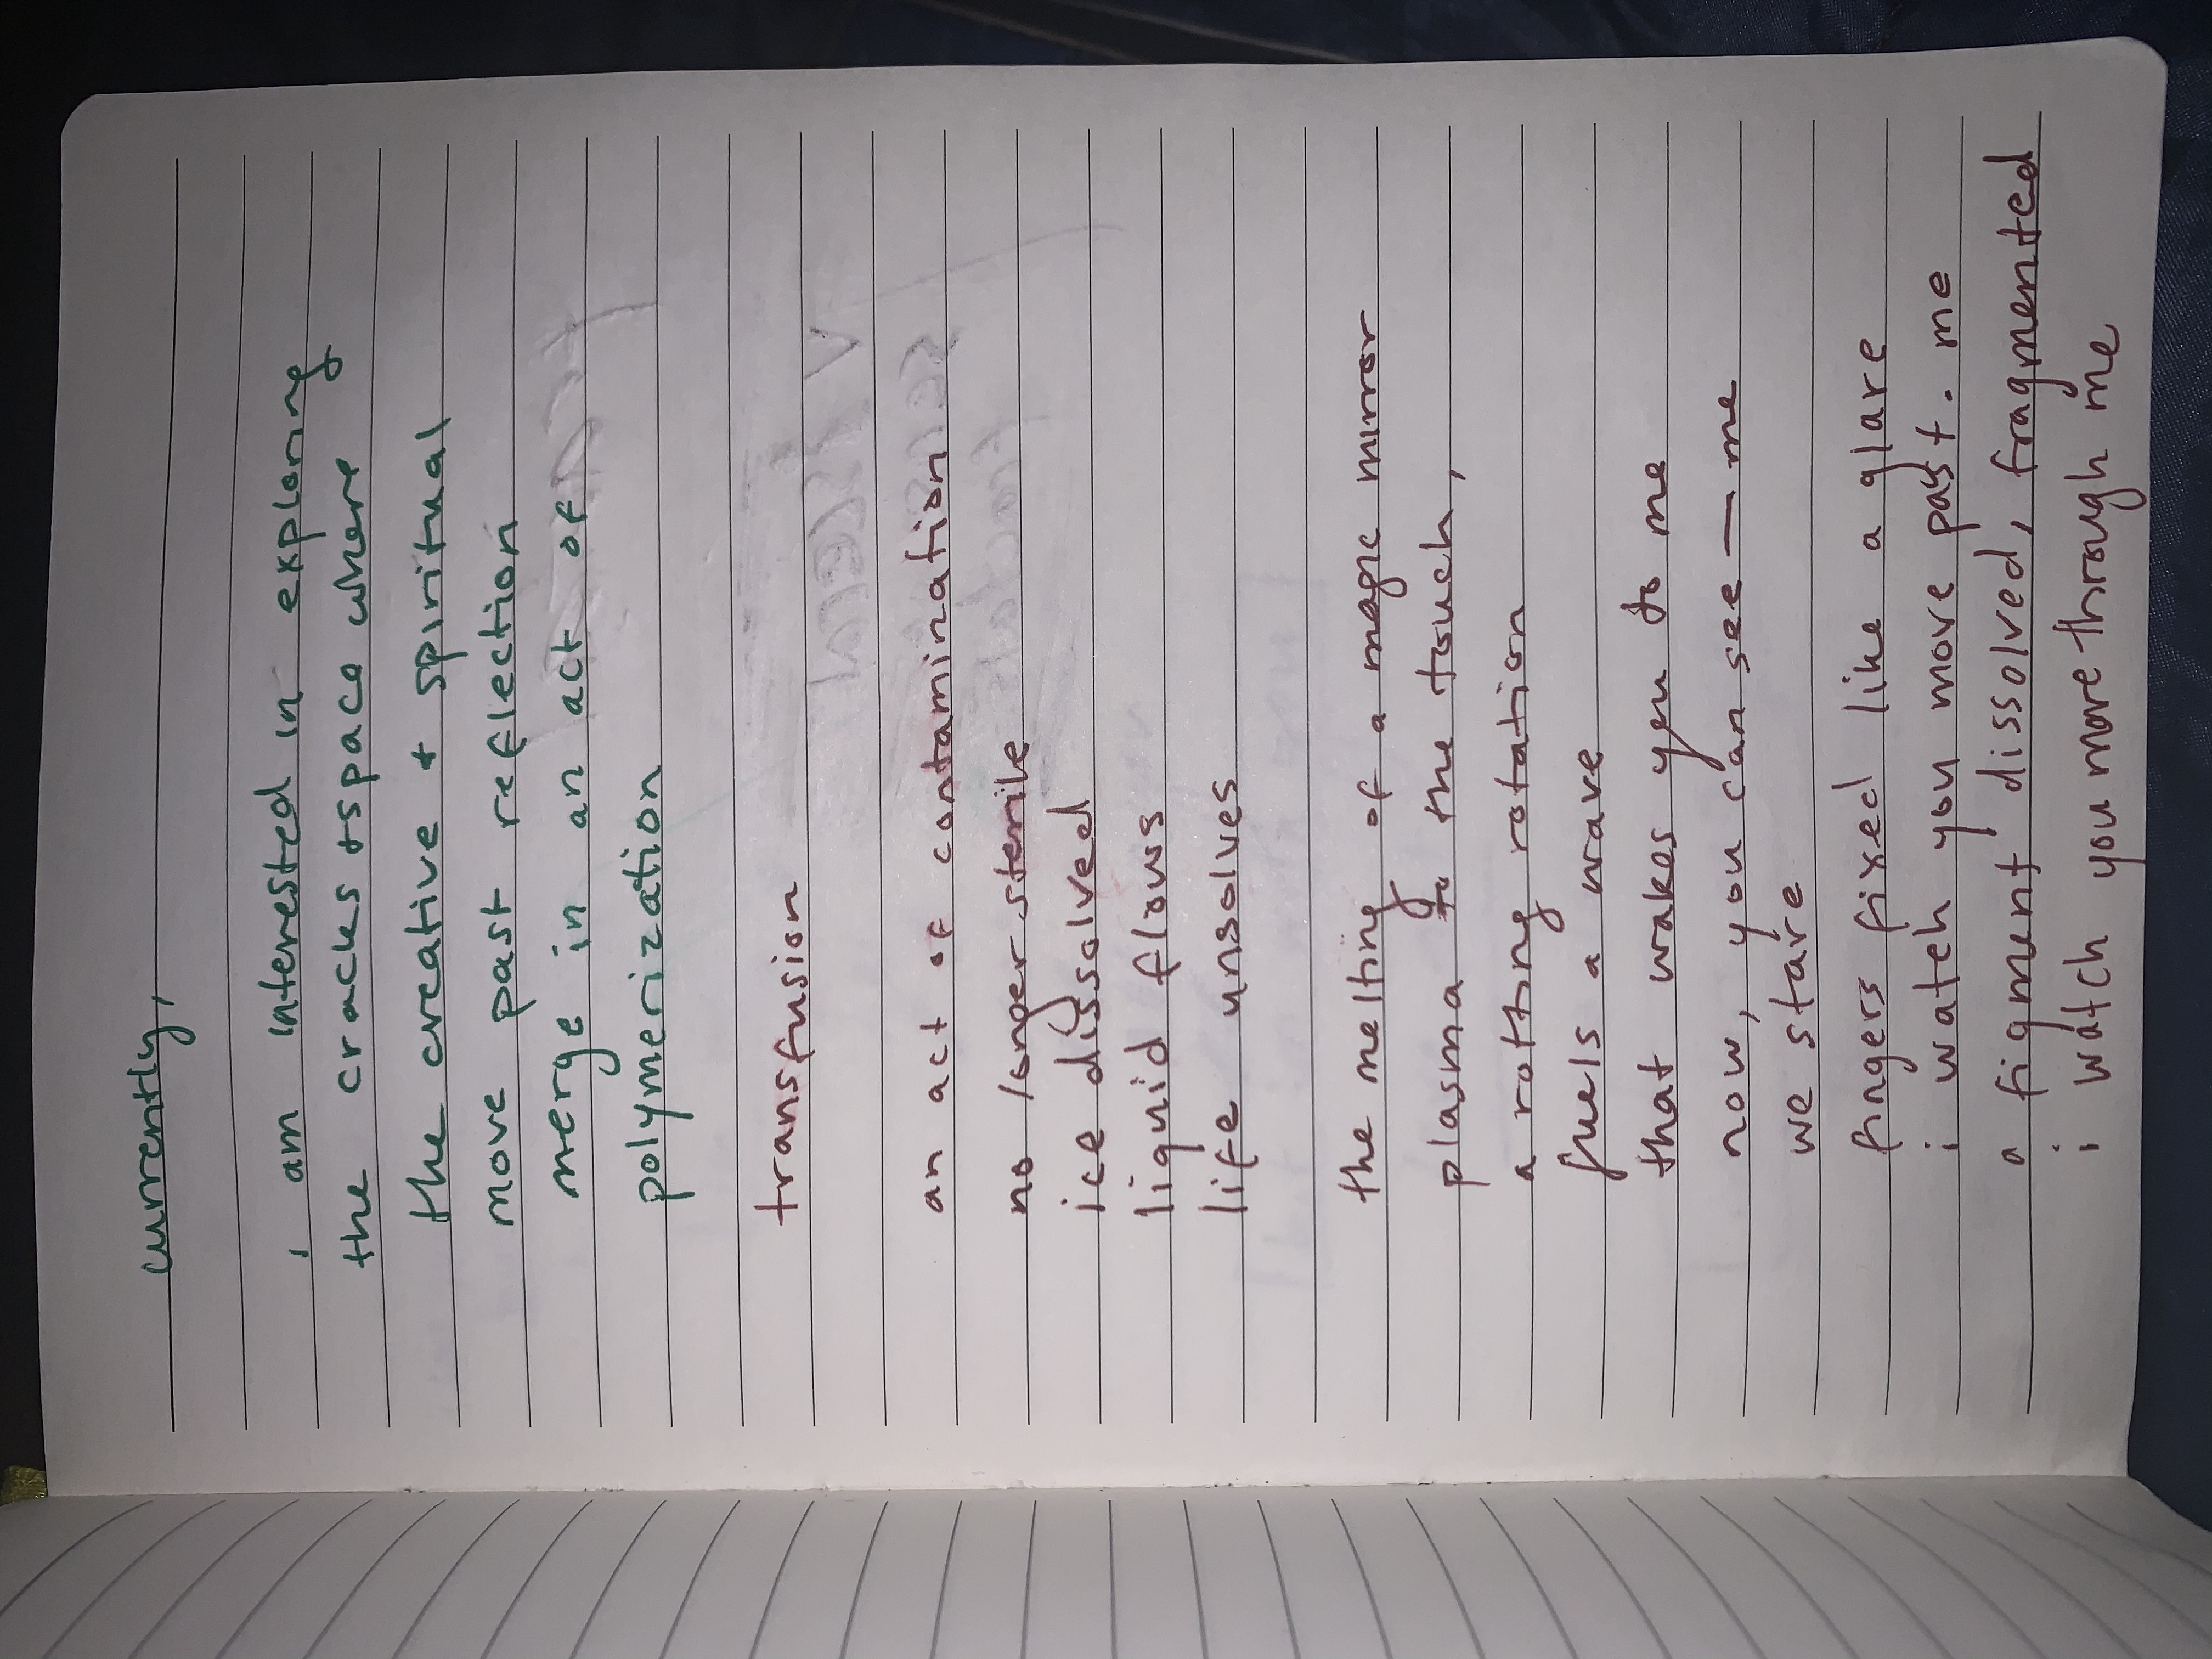 currently,
i am interested in exploring
the cracks + space where
the creative + spiritual
move past reflection
merge in an act of
polymerization
transfusion
an act of contamination
no longer sterile
ice dissolved
liquid flows
life unsolves
the melting of a magic mirror
plasma to the touch,
a rotting rotation
fuels a wave
that wakes you to me
now, you can see — me
we stare
fingers fixed like a glare
i watch you move past. me
a figment dissolved, fragmented
i watch you move through me